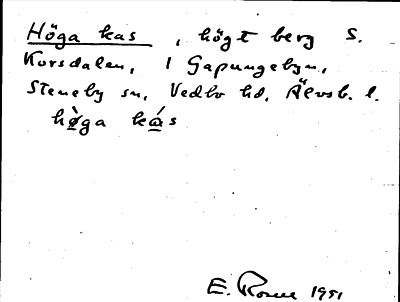 Höga kas, högt berg S.
Korsdalen, i Gapungebyn,
Steneby sn, Vedbo hd, Älvsb. l.
hø̀ga kás
E. Rosell 1951